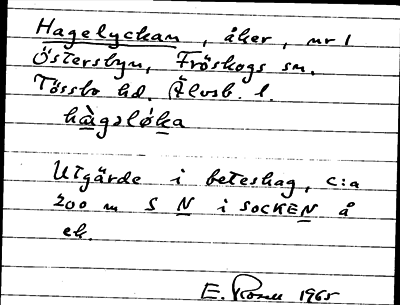 Hagelyckan, åker, nr 1
Östersbyn, Fröskogs sn.
Tössbo hd. Älvsb. l.
hàgəløka
Utgärde i beteshag, c:a
200 m S N i SOCKEN å
ek.
E. 1965